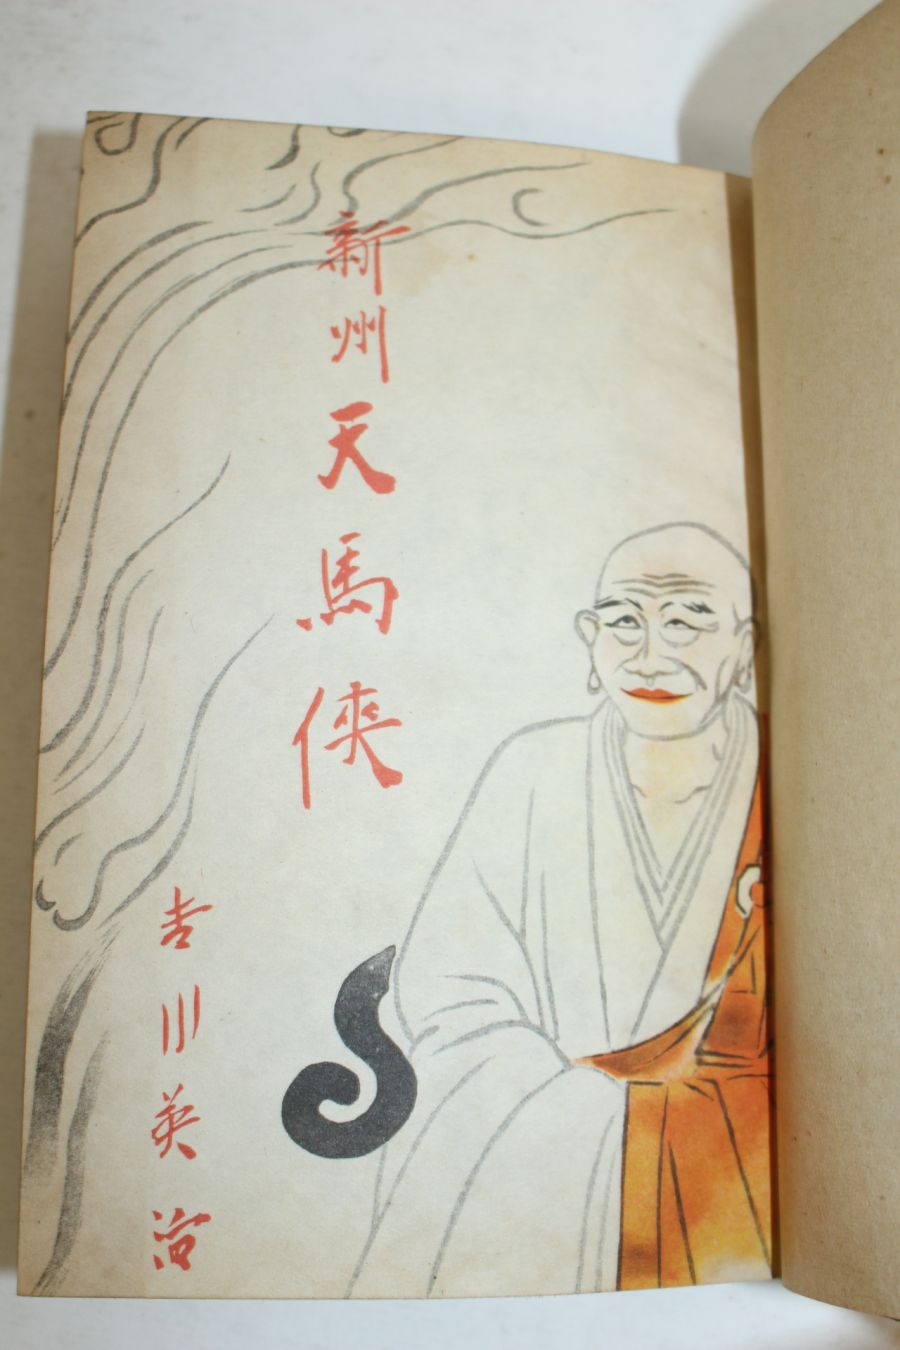 新州天馬侠
吉川英治